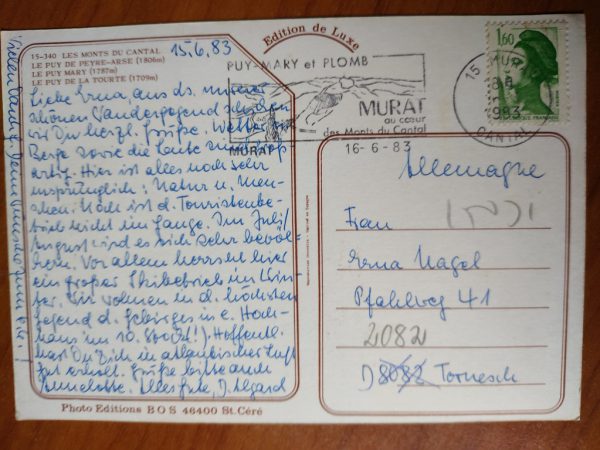 15-340 LES MONTS DU CANTAL
LE PUY DE PEYRE-ARSE (1806m)
LE PUY MARY (1787m)
LE PUY DE LA TOURTE (1709m)
15.6.83
Liebe Erna aus ds. unserer
schönen Wandergegend schicken
wir Dir herzl. Grüße. Wetter,
Berge sowie die Leute sind groß-
artig. Hier ist alles noch sehr
ursprünglich: Natur u. Men-
schen. Noch ist d. Touristenbe-
trieb nicht im Gange. Im Juli/
August wird es sich sehr bevöl-
kern. Vor allem herrscht hier
ein großer Skibetrieb im Win-
ter. Wir wohnen in d. höchsten
Gegend d. Gebirges in e. Hoch-
haus im 10. Stock(!). Hoffentl.
hast Du Dich in atlantischer Luft
gut erholt. Grüße bitte auch
Annelotte. Alles Gute, D.
Vielen Dank f. Deine
Photo Editions B O S 46400 St. Céré
Edition de Luxe
PUY-MARY et PLOMB
MURAT
au cœur
des Monts du Cantal
MURAT
16-6-83
15 MURAT
1983
CANTAL
1,60
Allemagne
Frau
Erna Nagel
Pfahlweg 41
2082
D 8082 Tornesch